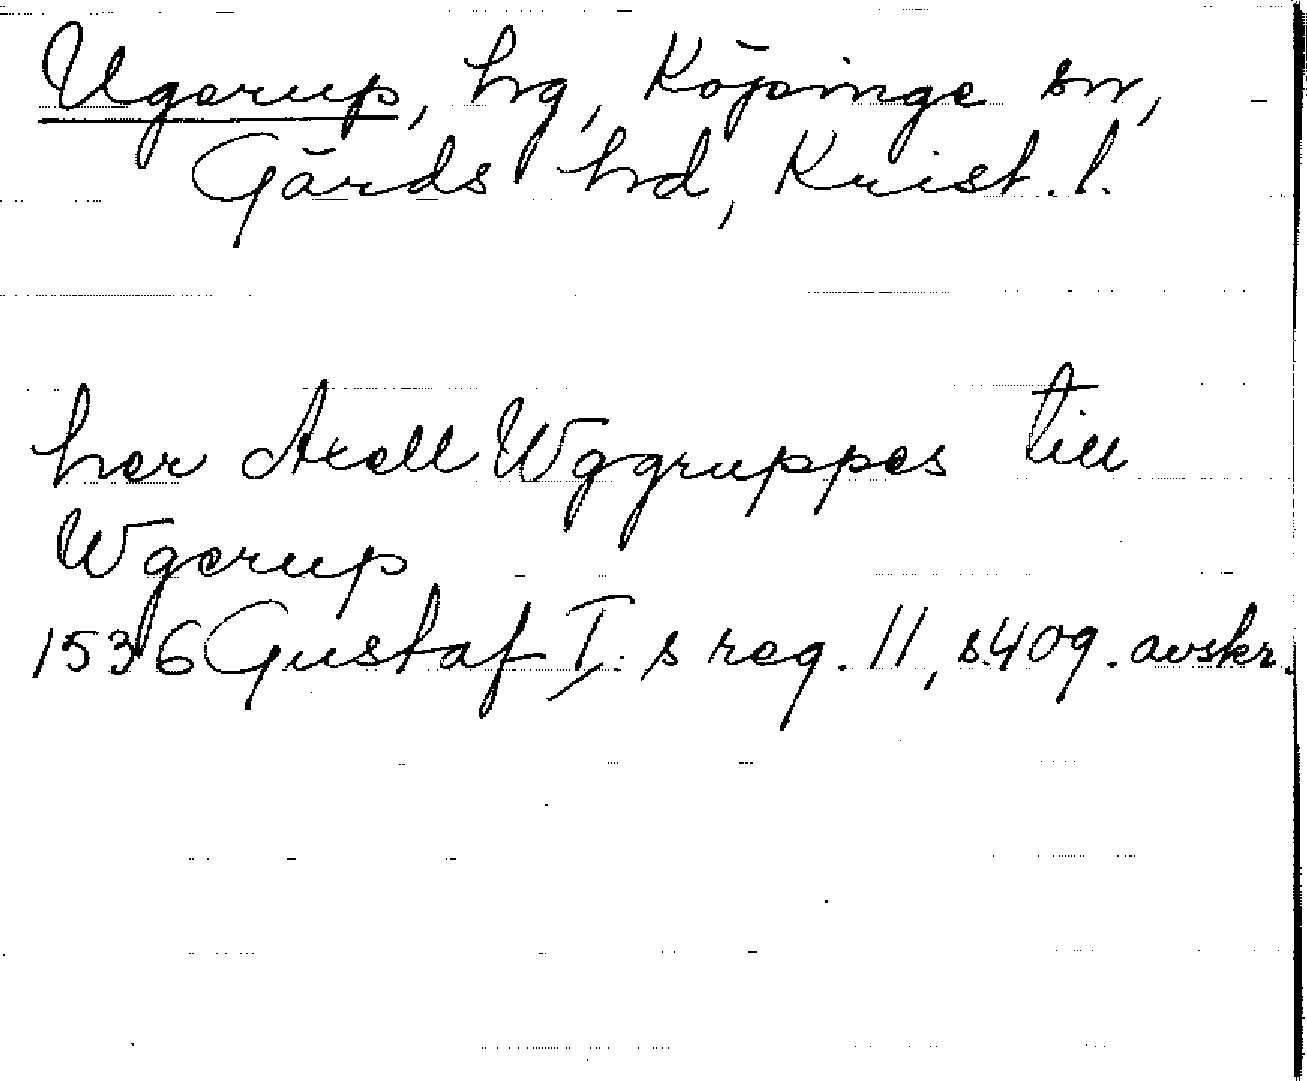 Ugerup, hg, Köpinge sn,
Gärds hd, Krist. l.
her Axell Wggruppes till
Wgerup
1536 Gustaf I:s reg. 11, s. 409. avskr.